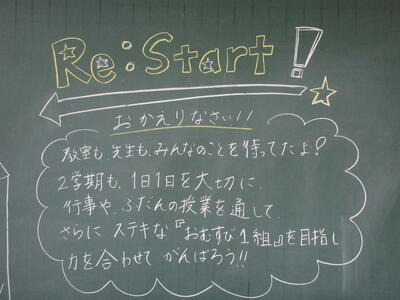 Re:Start!
おかえりなさい!!
教室も、先生も、みんなのことを待ってたよ?
2学期も、1日1日を大切に、
行事や、ふだんの授業を通して
さらに ステキな『おむすび1組』を目指し
力を合わせて がんばろう!!